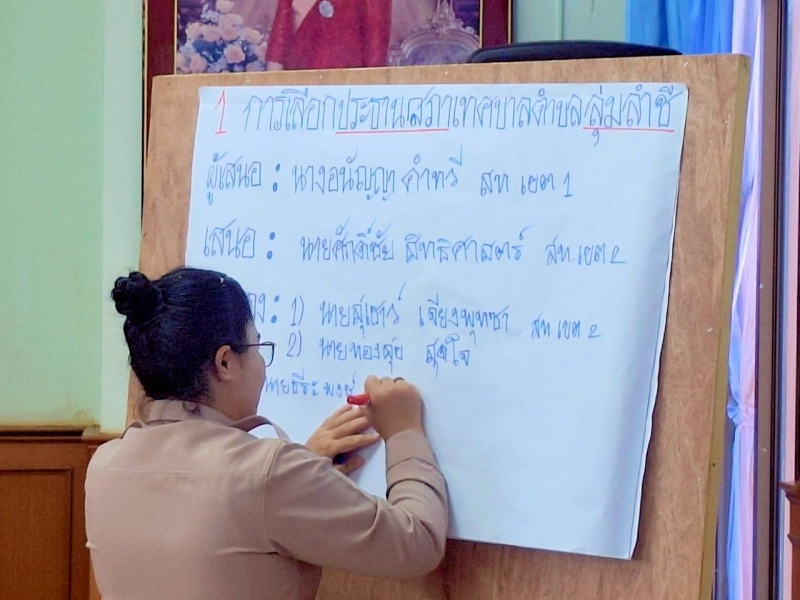 1 การเลือกประธานสภาเทศบาลตำบลลุ่มลำชี
ผู้เสนอ : นางอนัญญา คำทวี สท เขต 1
เสนอ : นายศักดิ์ชัย สิทธิศาสตร์ สท. เขต 2
อง : 1) นายสุเชาว์ เจียงพุทซา สท เขต 2
2) นายทองสุข สุขใจ
นายธีระพงษ์